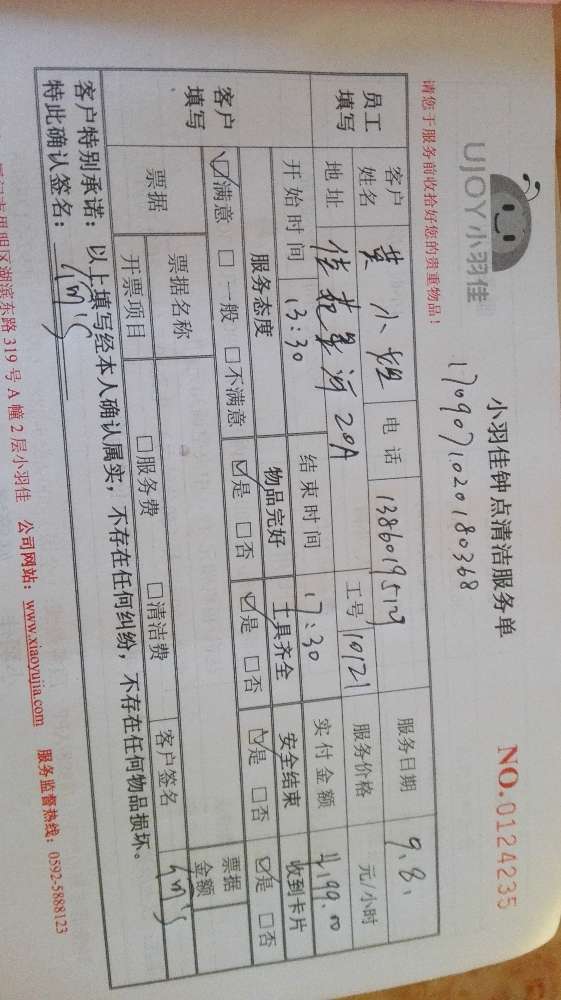 UJOY小羽佳
小羽佳钟点清洁服务单
NO.0124235
1709071020180368
请您于服务前收拾好您的贵重物品！
员工填写 客户姓名 黄小姐 电话 13860195119 服务日期 9.8.
地址 佳花星河20A 工号 10121 服务价格 元/小时
开始时间 13:30 结束时间 17:30 实付金额 199.00
客户填写 服务态度 物品完好 工具齐全 安全结束 收到卡片
☑满意 □一般 □不满意 ☑是 □否 ☑是 □否 ☑是 □否 ☑是 □否
票据 票据名称 票据金额
开票项目 □服务费 □清洁费 客户签名
客户特别承诺：以上填写经本人确认属实，不存在任何纠纷，不存在任何物品损坏。
特此确认签名：
思明区湖滨东路319号A幢2层小羽佳 公司网站：www.xiaoyujia.com 服务监督热线：0592-5888123